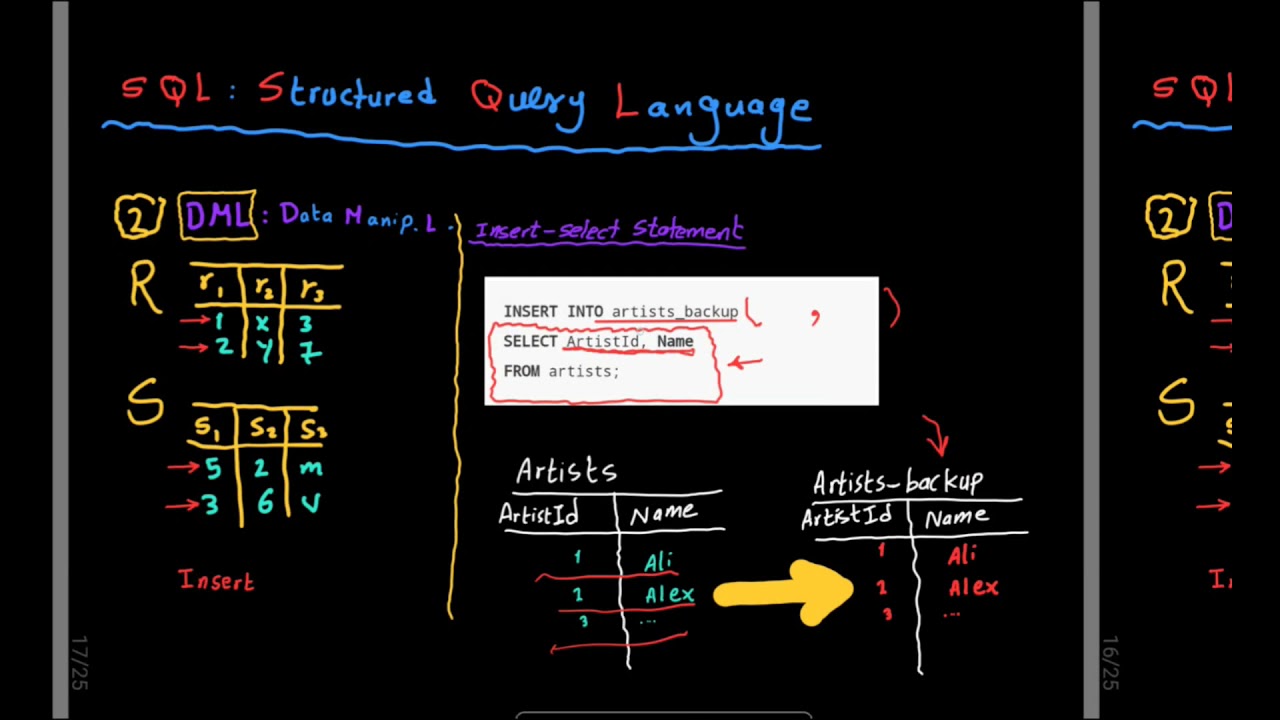 SQL : Structured Query Language
2 DML : Data Manip. L.
R
r1 r2 r3
1 x 3
2 y 7
S
S1 S2 S3
5 2 m
3 6 v
Insert
Insert-select Statement
INSERT INTO artists_backup ( , )
SELECT ArtistId, Name
FROM artists;
Artists
ArtistId Name
1 Ali
2 Alex
3 ...
Artists-backup
ArtistId Name
1 Ali
2 Alex
3 ...
17/25
16/25
SQL
2 D
R
S
In